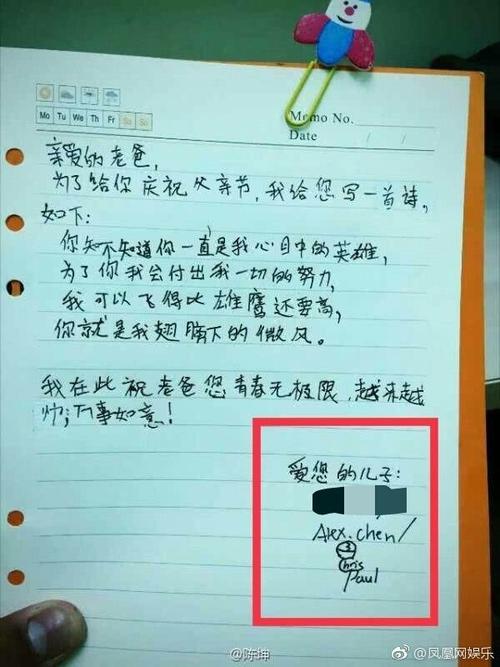 Mo Tu We Th Fr Sa Su
Memo No.
Date / /
亲爱的老爸,
为了给你庆祝父亲节,我给您写一首诗,
如下:
你知不知道你一直是我心目中的英雄,
为了你我会付出我一切的努力,
我可以飞得比雄鹰还要高,
你就是我翅膀下的微风。
我在此祝老爸您青春无极限,越来越
帅,万事如意!
爱您的儿子:
Alex.chen/
3
Chris
Paul
@陈坤
@凤凰网娱乐